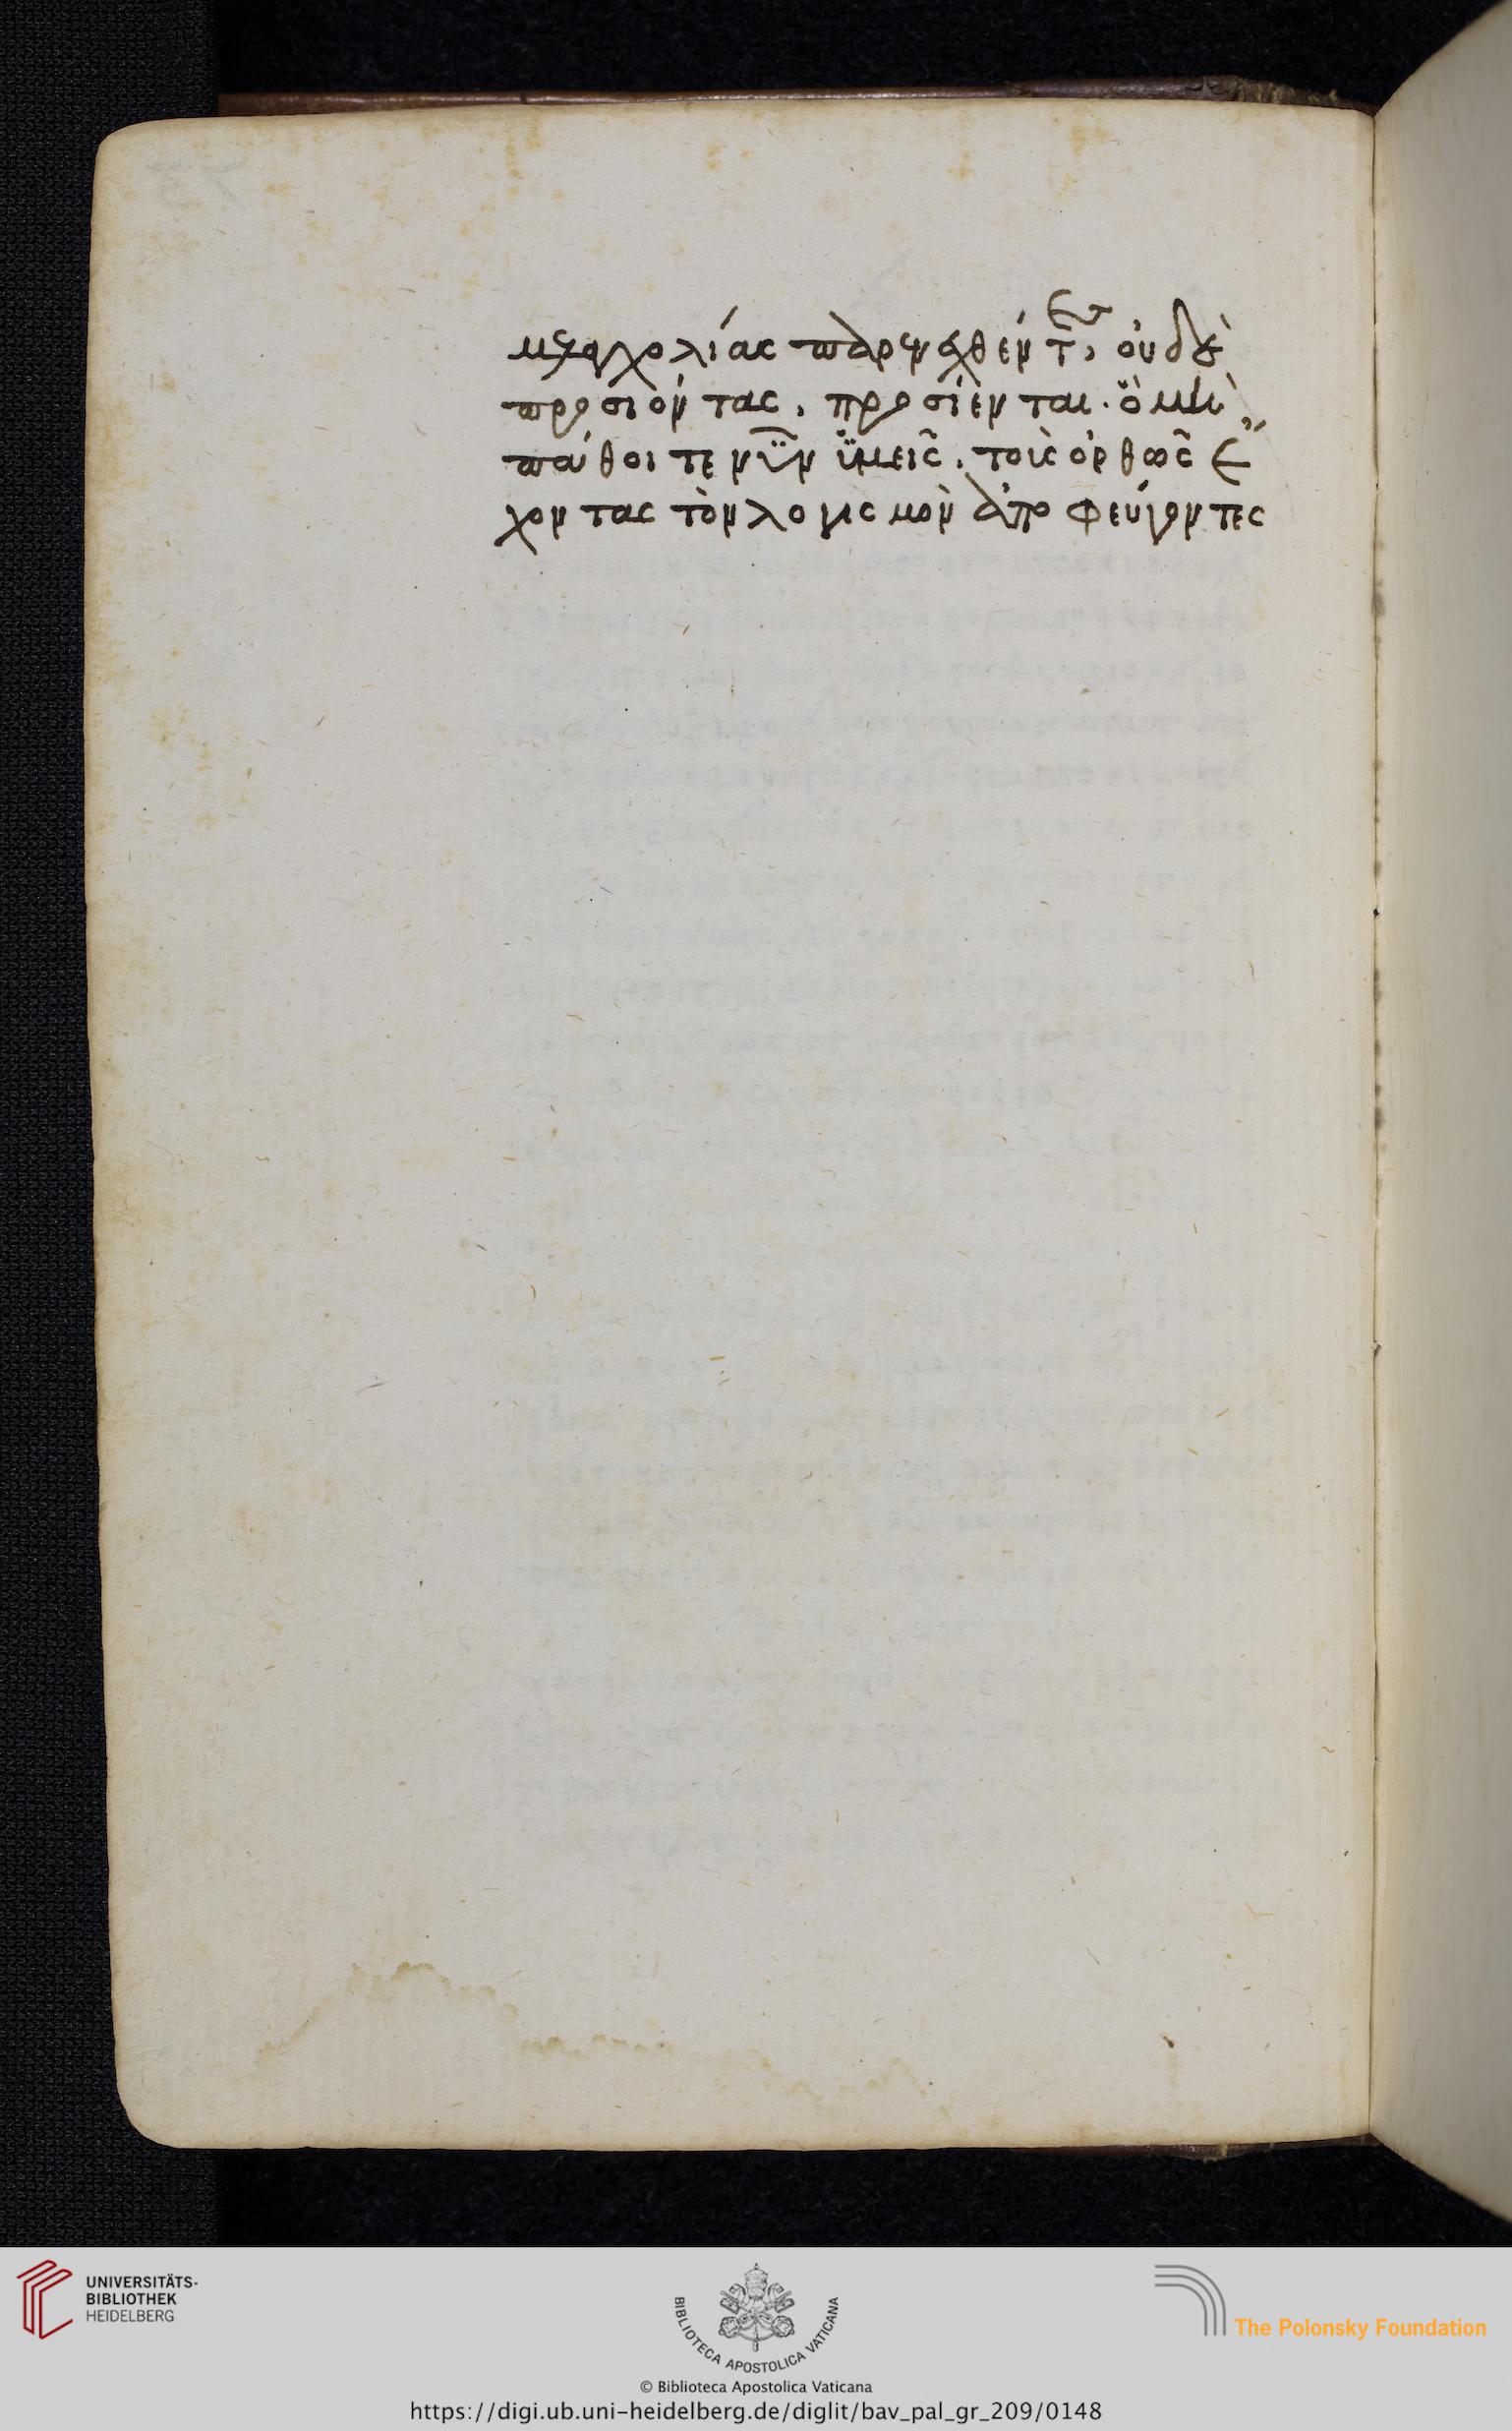 μελαγχολίας παρενεχθέντες, οὐδὲ
προσιόντας, προσίενται. ὃ μὴ
πάθοιτε νῦν ὑμεῖς, τοὺς ὀρθῶς ἔ
χοντας τὸν λογισμὸν ἀποφεύγοντες
UNIVERSITÄTS-
BIBLIOTHEK
HEIDELBERG
BIBLIOTECA APOSTOLICA VATICANA
The Polonsky Foundation
© Biblioteca Apostolica Vaticana
https://digi.ub.uni-heidelberg.de/diglit/bav_pal_gr_209/0148